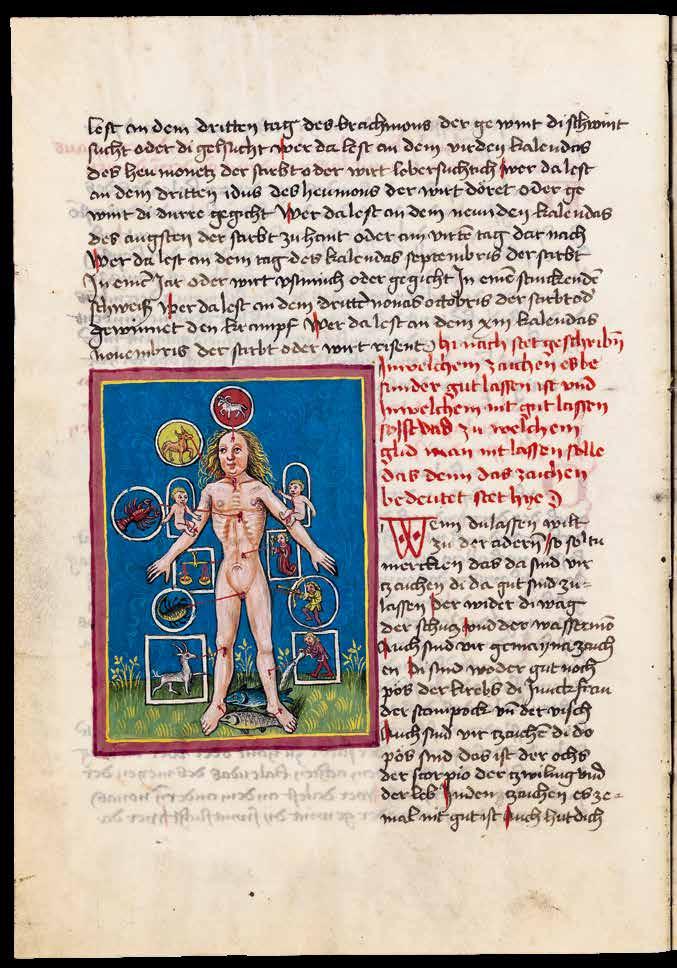 lest an dem dritten tag des brachmons der gewint di schwint
sucht oder di gelsucht wer da lest an dem virden kalendas
des heumonetz der stirbt oder wirt lebersuchtich wer da lest
an dem dritten idus des heumons der wirt döret oder ge
wint di durre gegicht Wer da lest an dem neunden kalendas
des augsten der stirbt zu hant oder am virten tag dar nach
Wer da lest an dem tag des kalendas septembris der stirbt
In einem Jar oder wirt gegicht In einem stinckenden
schweiß Wer da lest an dem dritten nonas octobris der stirbt od
gewinnet den krampf Wer da lest an dem xiii kalendas
novembris der stirbt oder wirt risent hi nach stet geschriben
In welchem zaichen es be
sunder gut lassen ist und
In welchem nit gut lassen
ist und zu welchem
glid man nit lassen solle
das denn das zaichen
bedeutet stet hye
Wenn du lassen wilt
zu der adern so soltu
mercken das da sind vir
tzaichen di da gut sind zu=
lassen der wider di wag
der schucz und der wasserman
Auch sind vir gemayne zaich
en Di sind weder gut noch
pös der krebs di Junckfrau
der stainpock vn der visch
Auch sind vir tzaiche di do
pös sind das ist der ochs
der scorpio der tzwiling und
der leb In den tzaichen es ze=
mal nit gut ist Auch hut dich